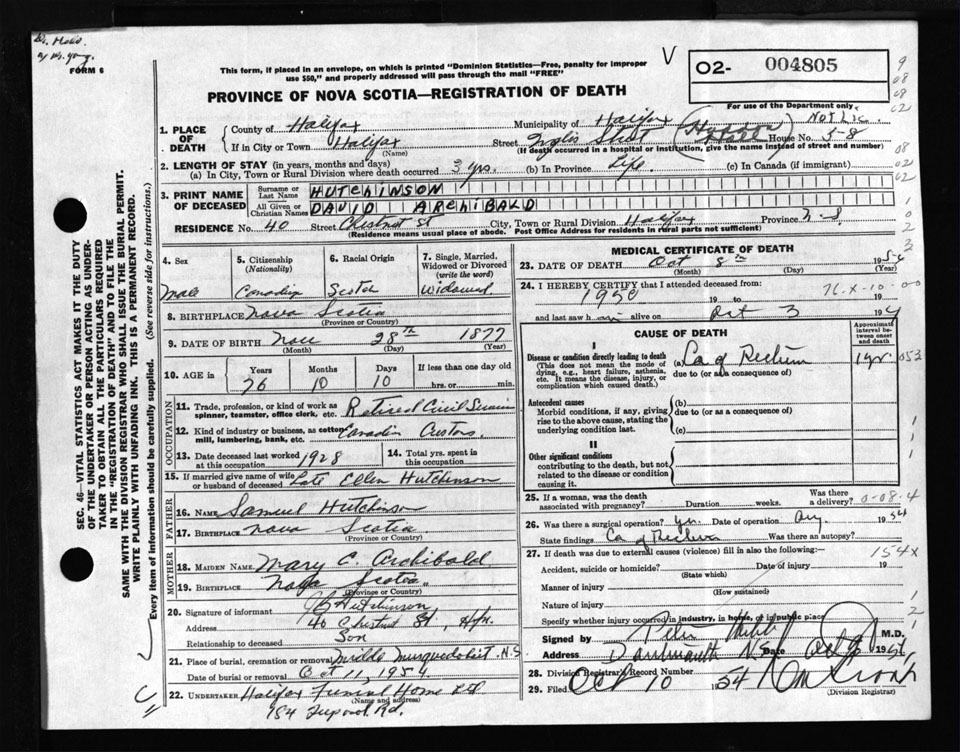 FORM 6
This form, if placed in an envelope, on which is printed "Dominion Statistics—Free, penalty for improper
use $50," and properly addressed will pass through the mail "FREE"
V
02- 004805
For use of the Department only
PROVINCE OF NOVA SCOTIA—REGISTRATION OF DEATH
Not Lic.
1. PLACE OF DEATH
County of Halifax Municipality of Halifax
If in City or Town Halifax (Name) Street Inglis Street House No. 5-8
(If death occurred in a hospital or institution, give the name instead of street and number)
2. LENGTH OF STAY (in years, months and days)
(a) In City, Town or Rural Division where death occurred 3 yrs. (b) In Province life. (c) In Canada (if immigrant)
3. PRINT NAME OF DECEASED
Surname or Last Name HUTCHINSON
All Given or Christian Names DAVID ARCHIBALD
RESIDENCE No. 40 Street Chestnut St City, Town or Rural Division Halifax Province N-S
(Residence means usual place of abode. Post Office Address for residents in rural parts not sufficient)
4. Sex Male
5. Citizenship (Nationality)
6. Racial Origin Scotch
7. Single, Married, Widowed or Divorced (write the word) Widowed
8. BIRTHPLACE Nova Scotia
(Province or Country)
9. DATE OF BIRTH Nov 28th 1877
(Month) (Day) (Year)
10. AGE in Years 76 Months 10 Days 10 If less than one day old hrs. or min.
OCCUPATION
11. Trade, profession, or kind of work as spinner, teamster, office clerk, etc. Retired Civil
12. Kind of industry or business, as cotton mill, lumbering, bank, etc. Customs.
13. Date deceased last worked at this occupation 1928
14. Total yrs. spent in this occupation
15. If married give name of wife or husband of deceased Late Ellen Hutchinson
FATHER
16. NAME Samuel Hutchinson
17. BIRTHPLACE Nova Scotia
(Province or Country)
MOTHER
18. MAIDEN NAME Mary C. Archibald
19. BIRTHPLACE Nova Scotia
(Province or Country)
20. Signature of informant Hutchinson
Address 40 Chestnut St., Hfx.
Relationship to deceased Son
21. Place of burial, cremation or removal Middle Musquodoboit. N.S
Date of burial or removal Oct 11, 1954
22. UNDERTAKER Halifax Funeral Home Ltd.
(Name and address)
Rd.
MEDICAL CERTIFICATE OF DEATH
23. DATE OF DEATH Oct 8th 1954
(Month) (Day) (Year)
24. I HEREBY CERTIFY that I attended deceased from:
1950 19 to 19
76-X-10-00
and last saw him alive on Oct 3 19
CAUSE OF DEATH
Approximate interval between onset and death
I
Disease or condition directly leading to death
(This does not mean the mode of dying, e.g., heart failure, asthenia, etc. It means the disease, injury, or complication which caused death.)
(a) Ca of Rectum 1 yr.
due to (or as a consequence of)
Antecedent causes
Morbid conditions, if any, giving rise to the above cause, stating the underlying condition last.
(b)
due to (or as a consequence of)
(c)
II
Other significant conditions
contributing to the death, but not related to the disease or condition causing it.
25. If a woman, was the death associated with pregnancy? Duration weeks. Was there a delivery?
0-08-4
26. Was there a surgical operation? yes. Date of operation Aug. 1954
State findings Ca of Rectum Was there an autopsy?
27. If death was due to external causes (violence) fill in also the following:
154X
Accident, suicide or homicide? (State which) Date of injury 19
Manner of injury (How sustained)
Nature of injury
Specify whether injury occurred in industry, in home, or in public place
Signed by Peter M.D.
Address Dartmouth N.S. Date Oct 9 1954
28. Division Registrar's Record Number
29. Filed Oct 10 1954
(Division Registrar)
SEC. 46—VITAL STATISTICS ACT MAKES IT THE DUTY
OF THE UNDERTAKER OR PERSON ACTING AS UNDER-
TAKER TO OBTAIN ALL THE PARTICULARS REQUIRED
IN THE "REGISTRATION OF DEATH" AND TO FILE THE
SAME WITH THE DIVISION REGISTRAR WHO SHALL ISSUE THE BURIAL PERMIT.
WRITE PLAINLY WITH UNFADING INK. THIS IS A PERMANENT RECORD.
Every item of information should be carefully supplied. (See reverse side for instructions.)